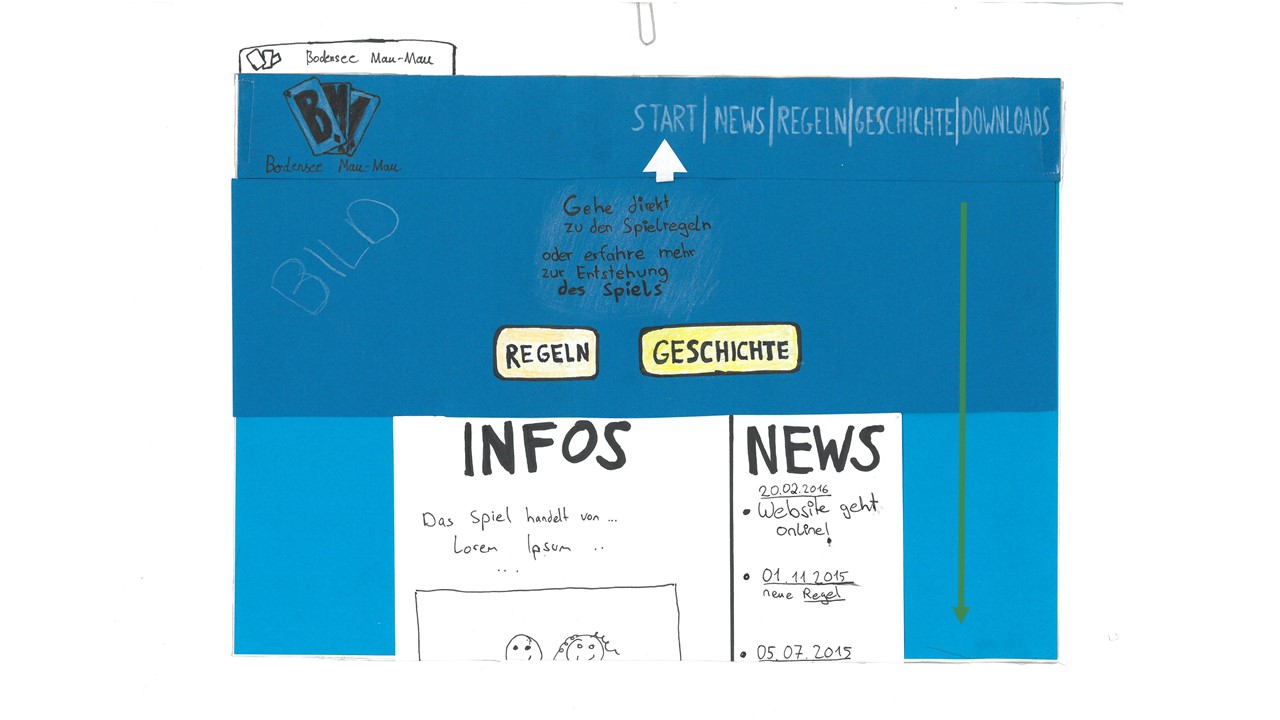 Bodensee Mau-Mau
BM
Bodensee Mau-Mau
START | NEWS | REGELN | GESCHICHTE | DOWNLOADS
BILD
Gehe direkt
zu den Spielregeln
oder erfahre mehr
zur Entstehung
des Spiels
REGELN
GESCHICHTE
INFOS
Das Spiel handelt von ...
Lorem Ipsum ..
...
NEWS
20.02.2016
• Website geht
online!
• 01.11.2015
neue Regel
• 05.07.2015